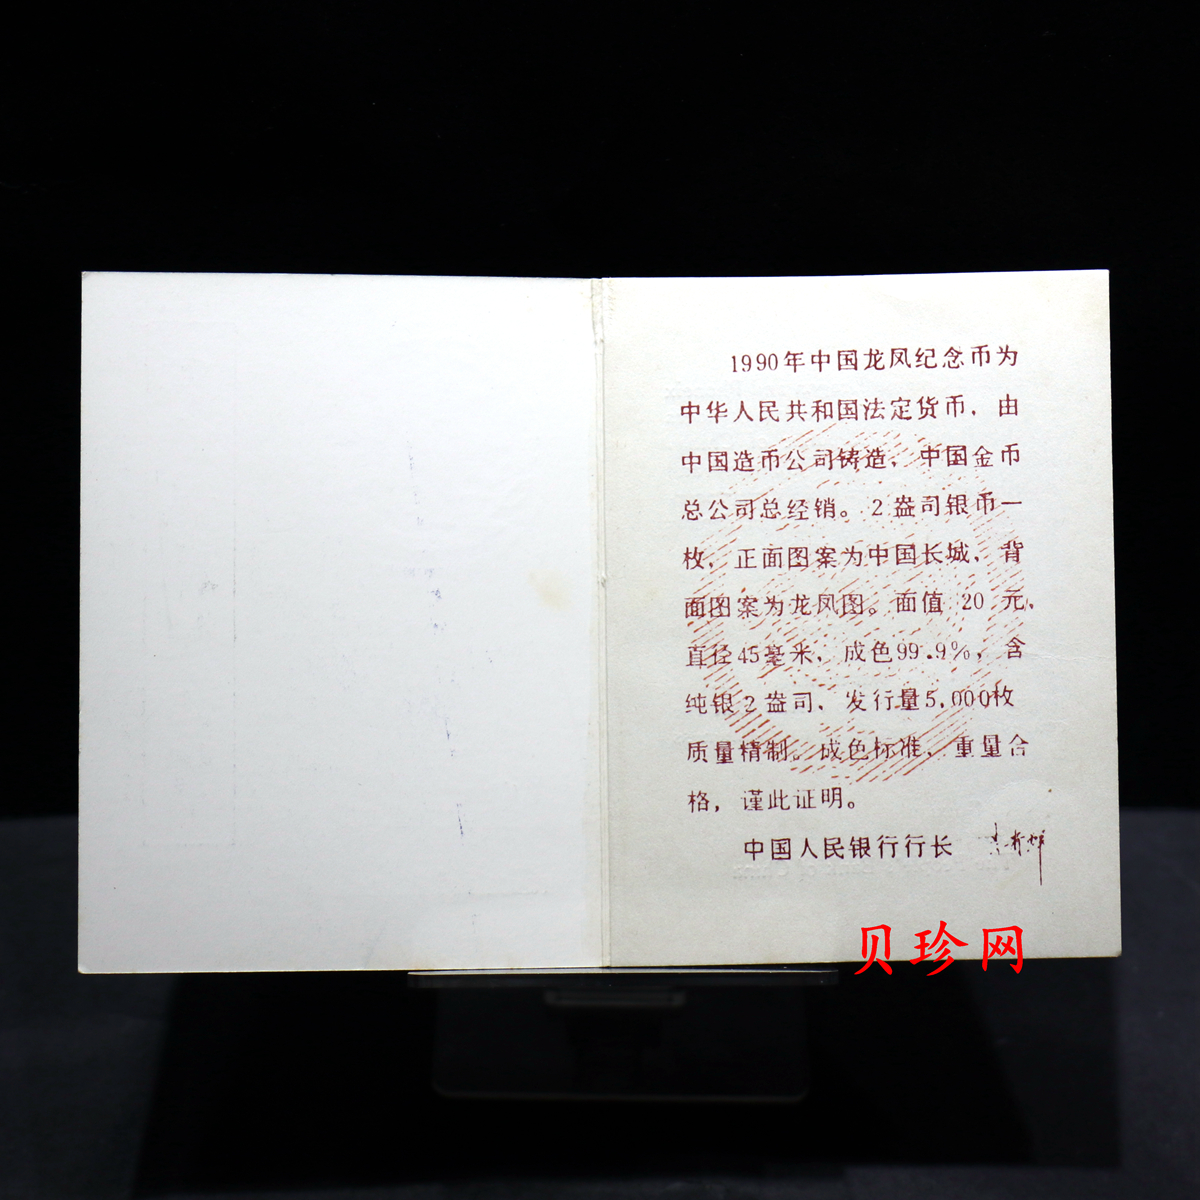 1990年中国龙凤纪念币为
中华人民共和国法定货币，由
中国造币公司铸造，中国金币
总公司总经销。2盎司银币一
枚，正面图案为中国长城，背
面图案为龙凤图。面值20元，
直径45毫米，成色99.9%，含
纯银2盎司，发行量5,000枚
质量精制。成色标准，重量合
格，谨此证明。
中国人民银行行长
贝珍网